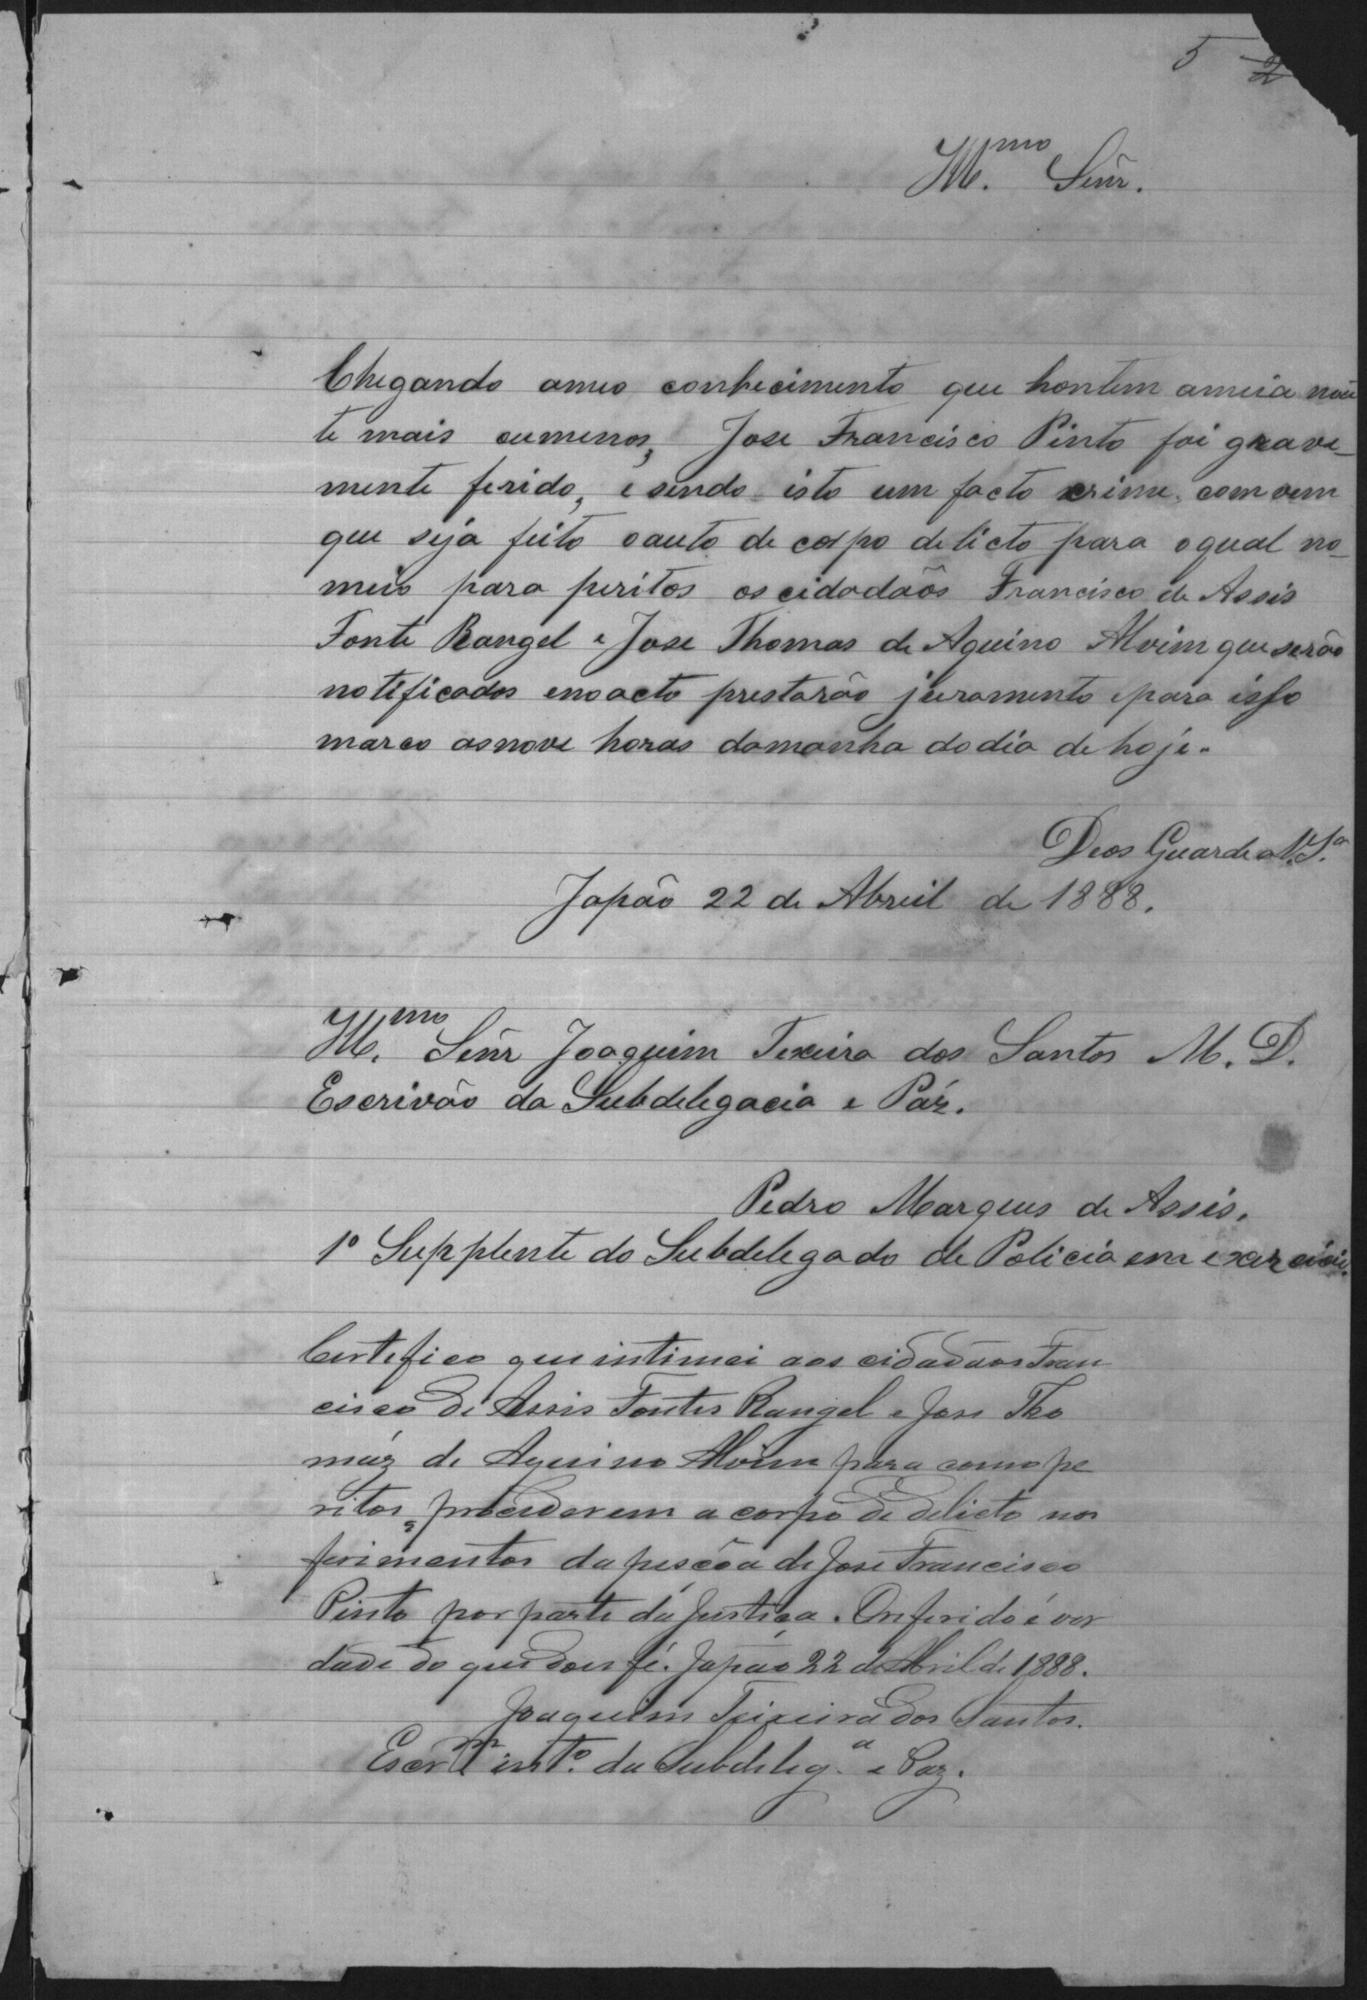 5 2
Ill.mo Señr.
Chegando ameo conhecimento que hontem ameia noi
te mais oumenos, Jose Francisco Pinto foi grave_
mente ferido, e sendo isto um facto crime, comvem
que seja feito oauto de corpo delicto para oqual no_
meio para peritos os cidadãos Francisco de Assis
Fonte Rangel e Jose Thomas de Aquino Alvim que serão
notificados enoacto prestarão juramento epara isso
marco asnove horas damanha dodia de hoje.
Deos Guarde a V. S.a
Japão 22 de Abril de 1888.
Ill.mo Señr Joaquim Texeira dos Santos M. D.
Escrivão da Subdelegacia e Páz.
Pedro Marques de Assis.
1º Supplente do Subdelegado de Policia em exercicio.
Certefico que intimei aos cidadãos Fran
cisco de Assis Fontes Rangel e Jose Tho
máz de Aquino Alvim para como pe
ritos, procederem a corpo de delicto nos
ferimentos da pescôa de Jose Francisco
Pinto por parte da Justiça. Oreferido é ver
dade do que dou fé. Japão 22 de Abril de 1888.
Joaquim Teixeira dos Santos.
Escr.m int.º da Subdeleg.a e Paz.